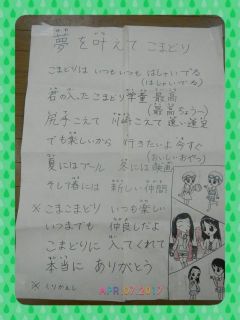 夢を叶えて こまどり
こまどりは いつもいつも はしゃいでる
(はしゃいでる)
君の入った こまどり学童 最高
(最高 さぁー)
尻手こえて 川崎こえて 遠い遠足
でも楽しいから 行きたいよ今すぐ
(おいしいおやつ)
夏にはプール 冬には映画
そして春には 新しい仲間
※こまこまどり いつも楽しい
いつまでも 仲良しだよ
こまどりに 入ってくれて
本当に ありがとう
※くりかえし
APR.07.2017